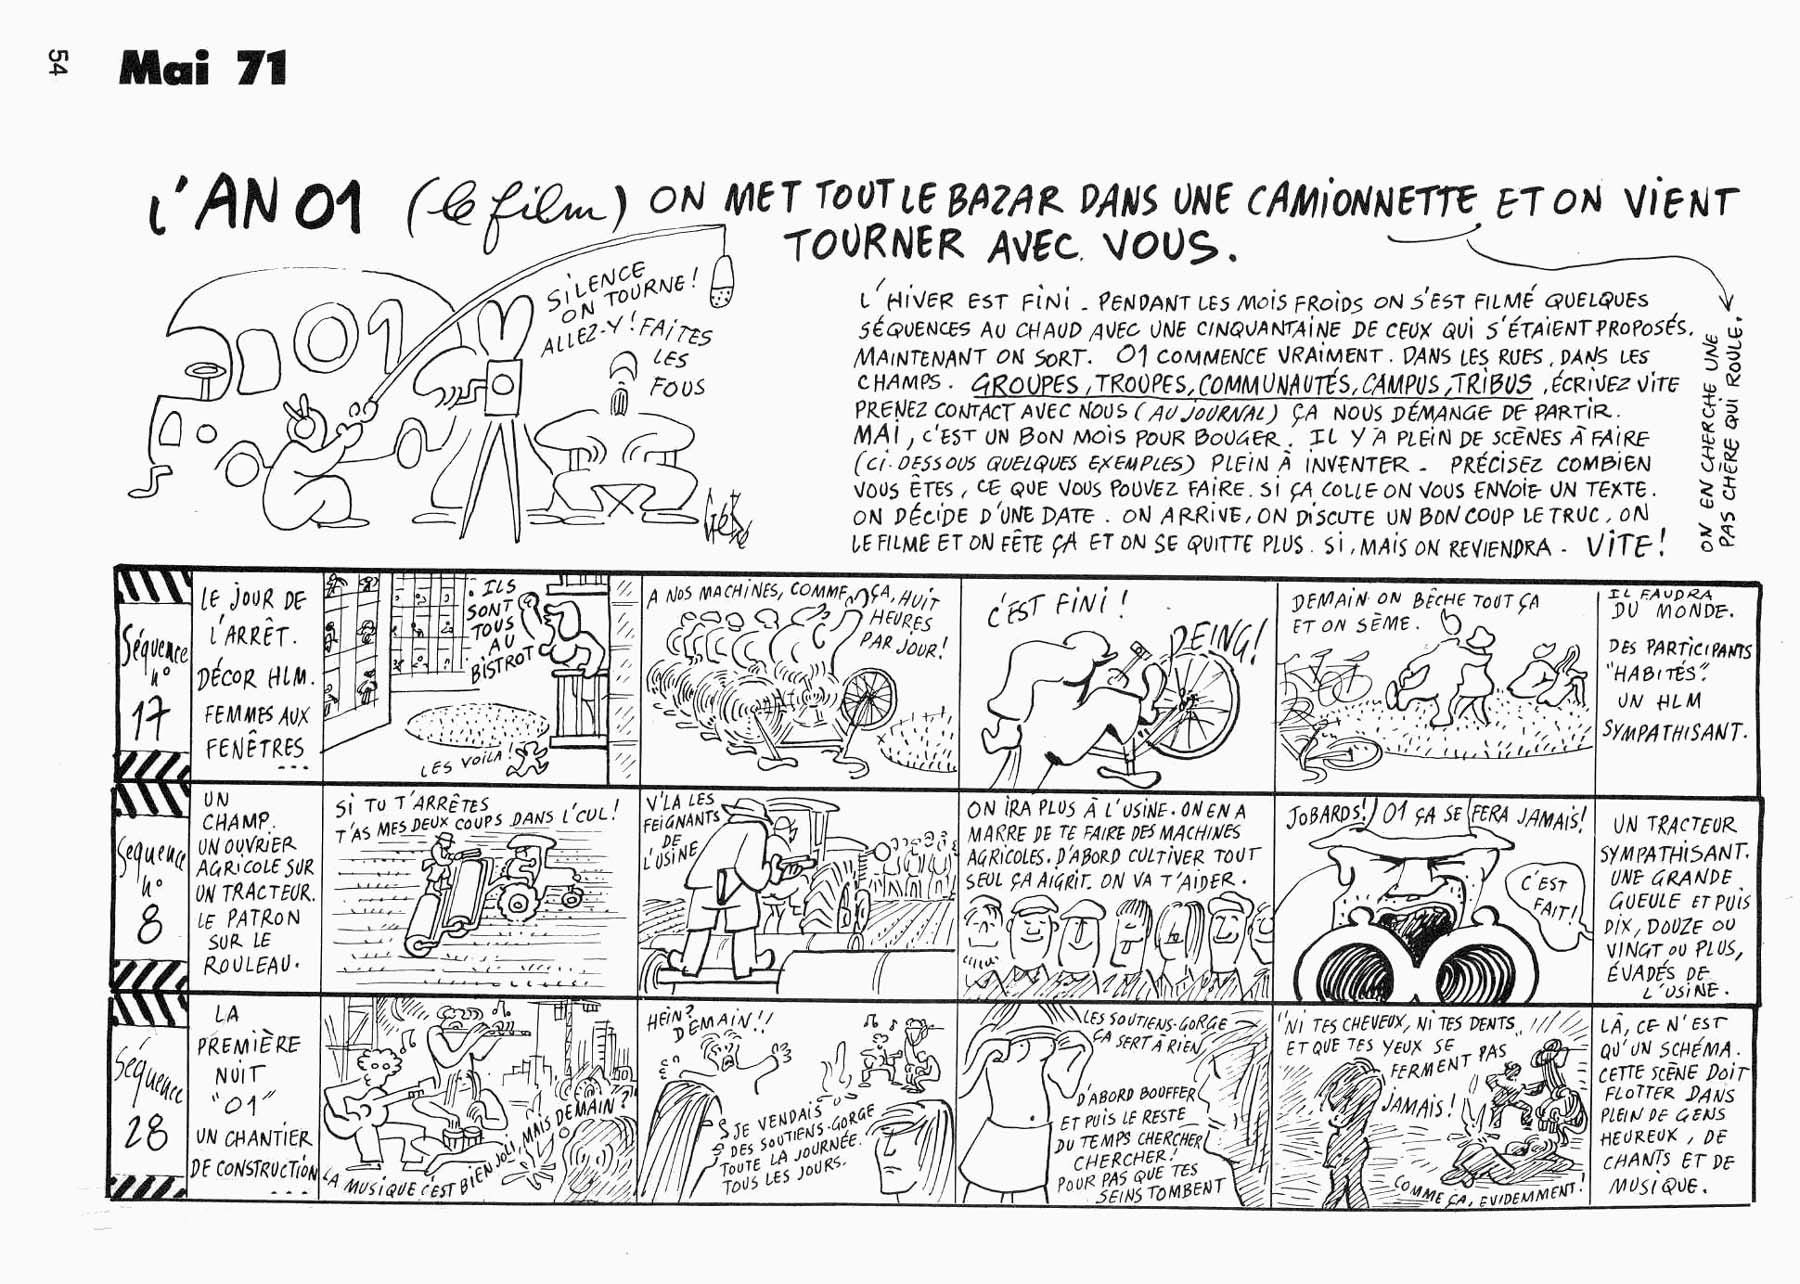 54
Mai 71
L'AN 01 (le film) ON MET TOUT LE BAZAR DANS UNE CAMIONNETTE ET ON VIENT
TOURNER AVEC VOUS.
ON EN CHERCHE UNE
PAS CHÈRE QUI ROULE.
SILENCE
ON TOURNE!
ALLEZ-Y! FAITES
LES
FOUS
01
GéBé
L'HIVER EST FINI - PENDANT LES MOIS FROIDS ON S'EST FILMÉ QUELQUES
SÉQUENCES AU CHAUD AVEC UNE CINQUANTAINE DE CEUX QUI S'ÉTAIENT PROPOSÉS.
MAINTENANT ON SORT. 01 COMMENCE VRAIMENT. DANS LES RUES, DANS LES
CHAMPS. GROUPES, TROUPES, COMMUNAUTÉS, CAMPUS, TRIBUS, ÉCRIVEZ VITE
PRENEZ CONTACT AVEC NOUS (AU JOURNAL) ÇA NOUS DÉMANGE DE PARTIR.
MAI, C'EST UN BON MOIS POUR BOUGER. IL Y A PLEIN DE SCÈNES À FAIRE
(CI-DESSOUS QUELQUES EXEMPLES) PLEIN À INVENTER - PRÉCISEZ COMBIEN
VOUS ÊTES, CE QUE VOUS POUVEZ FAIRE. SI ÇA COLLE ON VOUS ENVOIE UN TEXTE.
ON DÉCIDE D'UNE DATE. ON ARRIVE, ON DISCUTE UN BON COUP LE TRUC, ON
LE FILME ET ON FÊTE ÇA ET ON SE QUITTE PLUS. SI, MAIS ON REVIENDRA - VITE!
Séquence
n°
17
LE JOUR DE
L'ARRÊT.
DÉCOR HLM.
FEMMES AUX
FENÊTRES
...
ILS
SONT
TOUS
AU
BISTROT
LES VOILÀ!
A NOS MACHINES, COMME ÇA, HUIT
HEURES
PAR JOUR!
C'EST FINI!
DEING!
DEMAIN ON BÊCHE TOUT ÇA
ET ON SÈME.
IL FAUDRA
DU MONDE.
DES PARTICIPANTS
"HABITÉS".
UN HLM
SYMPATHISANT.
Sequence
n°
8
UN
CHAMP.
UN OUVRIER
AGRICOLE SUR
UN TRACTEUR.
LE PATRON
SUR LE
ROULEAU.
SI TU T'ARRÊTES
T'AS MES DEUX COUPS DANS L'CUL!
V'LA LES
FEIGNANTS
DE
L'USINE
ON IRA PLUS À L'USINE. ON EN A
MARRE DE TE FAIRE DES MACHINES
AGRICOLES. D'ABORD CULTIVER TOUT
SEUL ÇA AIGRIT. ON VA T'AIDER.
JOBARDS! 01 ÇA SE FERA JAMAIS!
C'EST
FAIT!
UN TRACTEUR
SYMPATHISANT.
UNE GRANDE
GUEULE ET PUIS
DIX, DOUZE OU
VINGT OU PLUS,
ÉVADÉS DE
L'USINE.
Séquence
28
LA
PREMIÈRE
NUIT
"01"
UN CHANTIER
DE CONSTRUCTION
...
LA MUSIQUE C'EST BIEN JOLI, MAIS DEMAIN?
HEIN?
DEMAIN!!
JE VENDAIS
DES SOUTIENS-GORGE
TOUTE LA JOURNÉE.
TOUS LES JOURS.
LES SOUTIENS-GORGE
ÇA SERT À RIEN
D'ABORD BOUFFER
ET PUIS LE RESTE
DU TEMPS CHERCHER
CHERCHER!
POUR PAS QUE TES
SEINS TOMBENT
"NI TES CHEVEUX, NI TES DENTS,
ET QUE TES YEUX SE
FERMENT PAS
JAMAIS!
COMME ÇA, EVIDEMMENT!
LÀ, CE N'EST
QU'UN SCHÉMA.
CETTE SCÈNE DOIT
FLOTTER DANS
PLEIN DE GENS
HEUREUX, DE
CHANTS ET DE
MUSIQUE.